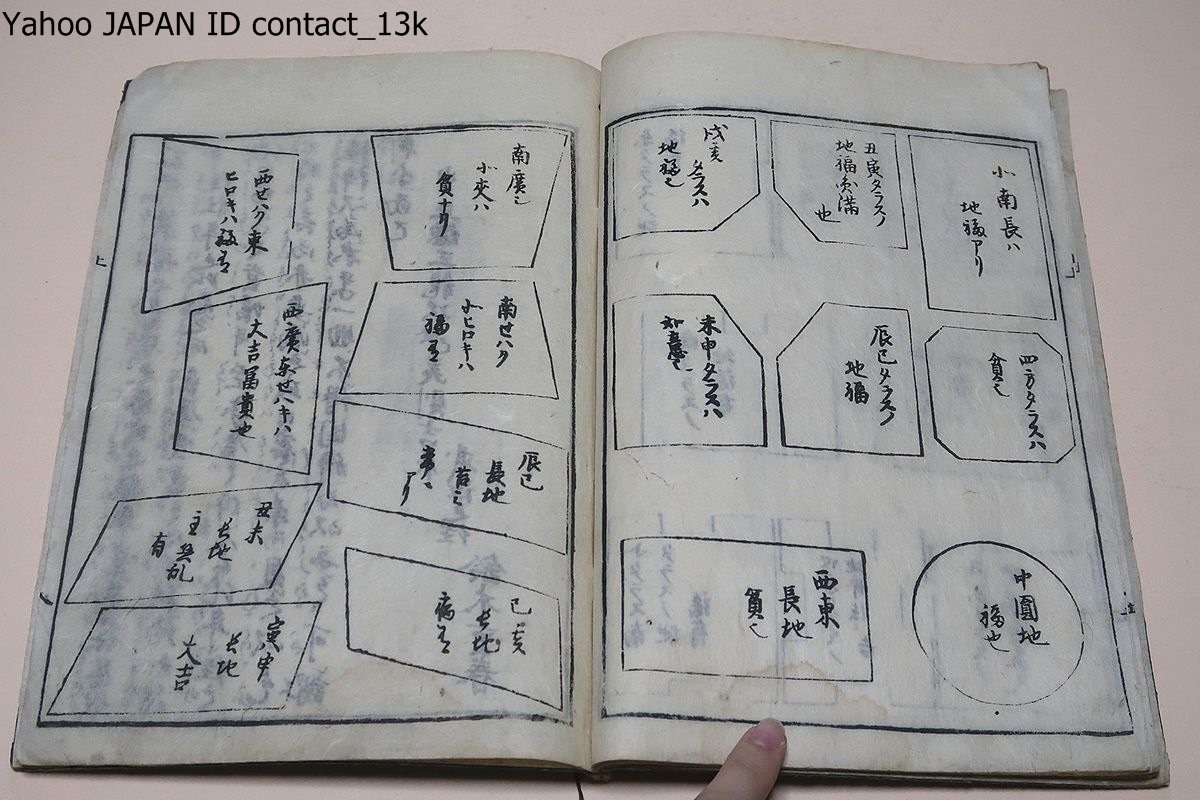 Yahoo JAPAN ID contact_13k
北南長ハ
地福アリ
丑寅タラスハ
地福円満
也
戌亥
タラスハ
地福也
四方タラスハ
貧也
辰巳タラスハ
地福
未申タラスハ
中圓地
福也
西東
長地
貧也
南廣ク
北夾ハ
貧ナリ
南せハク
北ヒロキハ
福有
辰巳
長地
アリ
巳亥
長地
病有
西せハク東
ヒロキハ福有
西廣東せハキハ
大吉冨貴也
長地
有
寅申
長地
大吉
上